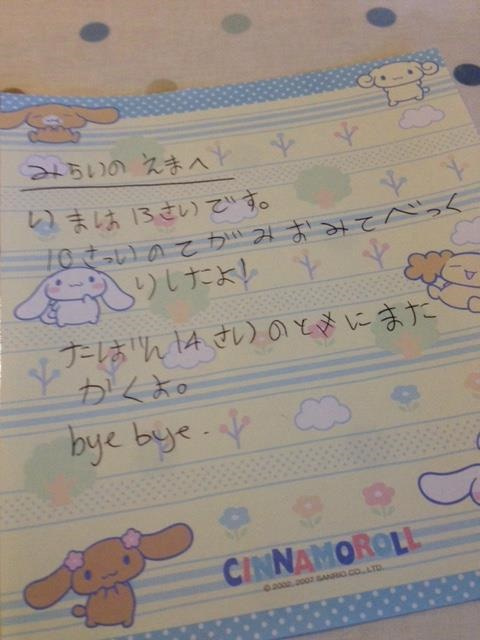 みらいの えまへ
いまは13さいです。
10さいのてがみおみてべっく
りしたよ!
たばじん14さいのときにまた
かくよ。
bye bye.
CINNAMOROLL
© 2002, 2007 SANRIO CO., LTD.